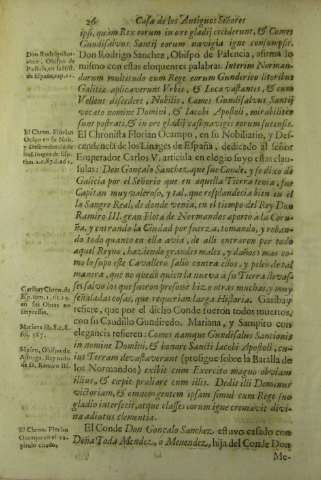 26 Casa de los Antiguos Señores
ipsi, quàm Rex eorum in ore gladij ceciderunt, & Comes
Gundisalvus Santij eorum navigia igne consumpsit.
Don Rodrigo Sanchez, Obispo de Palencia, afirma lo
mismo con estas eloquentes palabras. Interim Norman-
dorum multitudo cum Rege eorum Gunderico litoribus
Galitiæ aplicaverunt Urbes, & Loca vastantes, & cum
Vellent discedere, Nobilis, Comes Gundisalvus Santij
vocato nomine Domini, & Iacobi Apostoli, mirabiliter
sunt postrati, & in ore gladij
El Chronista Florian Ocampo, en su Nobiliario, y Des-
cendencia de los Linages de España, dedicado al señor
Emperador Carlos V. articula en elogio suyo estas clau-
sulas: Don Gonçalo Sanchez, que fue Conde, y sedixo de
Galicia por el Señorio que en aquella Tierra tenia, fue
Capitan muy valeroso, y tal, que resplandecia bien en el
la Sangre Real, de donde venia, en el tiempo del Rey Don
Ramiro III. gran Flota de Normandos aportò a la Coru-
ña, y entrando la Ciudad por fuerza, tomando, y roban-
do todo quanto en ella avia, de alli entraron por todo
aquel Reyno, haziendo grandes males, y daños: mas co-
mo lo supo este Cavallero, saliò contra ellos, y peleò de tal
manera, que no quedò quien la nueva a su Tierra llevas-
se: salvo los que fueron presos: hizo otras muchas, y muy
señaladas cosas, que requerian larga Historia. Garibay
refiere, que por el dicho Conde fueron todos muertos,
con su Caudillo Gundiredo. Mariana, y Sampiro con
elegancia refieren: Comes namque Gundisalvus Sanctionis
in nomine Domini, & honore Sancti Iacobi Apostoli, cu-
ius Terram devastaverant (prosigue sobre la Batalla de
los Normandos) exibit cum Exercitu magno obviam
illius, & cæpit præliare cum illis. Dedit illi Dominus
victoriam, & omnem gentem ipsam simul cum Rege suo
gladio interfecit, atque classes eorum igne cremavit divi-
na adiutus clementia.
El Conde Don Gonçalo Sanchez estuvo casado con
Doña Toda Mendez, o Menendez, hija del Conde Don
Me-
Don Rodrigo San-
chez, Obispo de
Palencia, en la Hist.
de España,
El Chron. Florian
Ocampo en su Nob.
y Descendencia de
los Linages de Esp.
Garibay Chron. de
Esp. tom. 1.
Mariana lib. 8. c. 8.
fol. 387.
Sampiro, Obispo de
Astorga, Reynado
de D. Ramiro III.
El Chron. Florian
Ocampo en el ca-
pitulo citado.